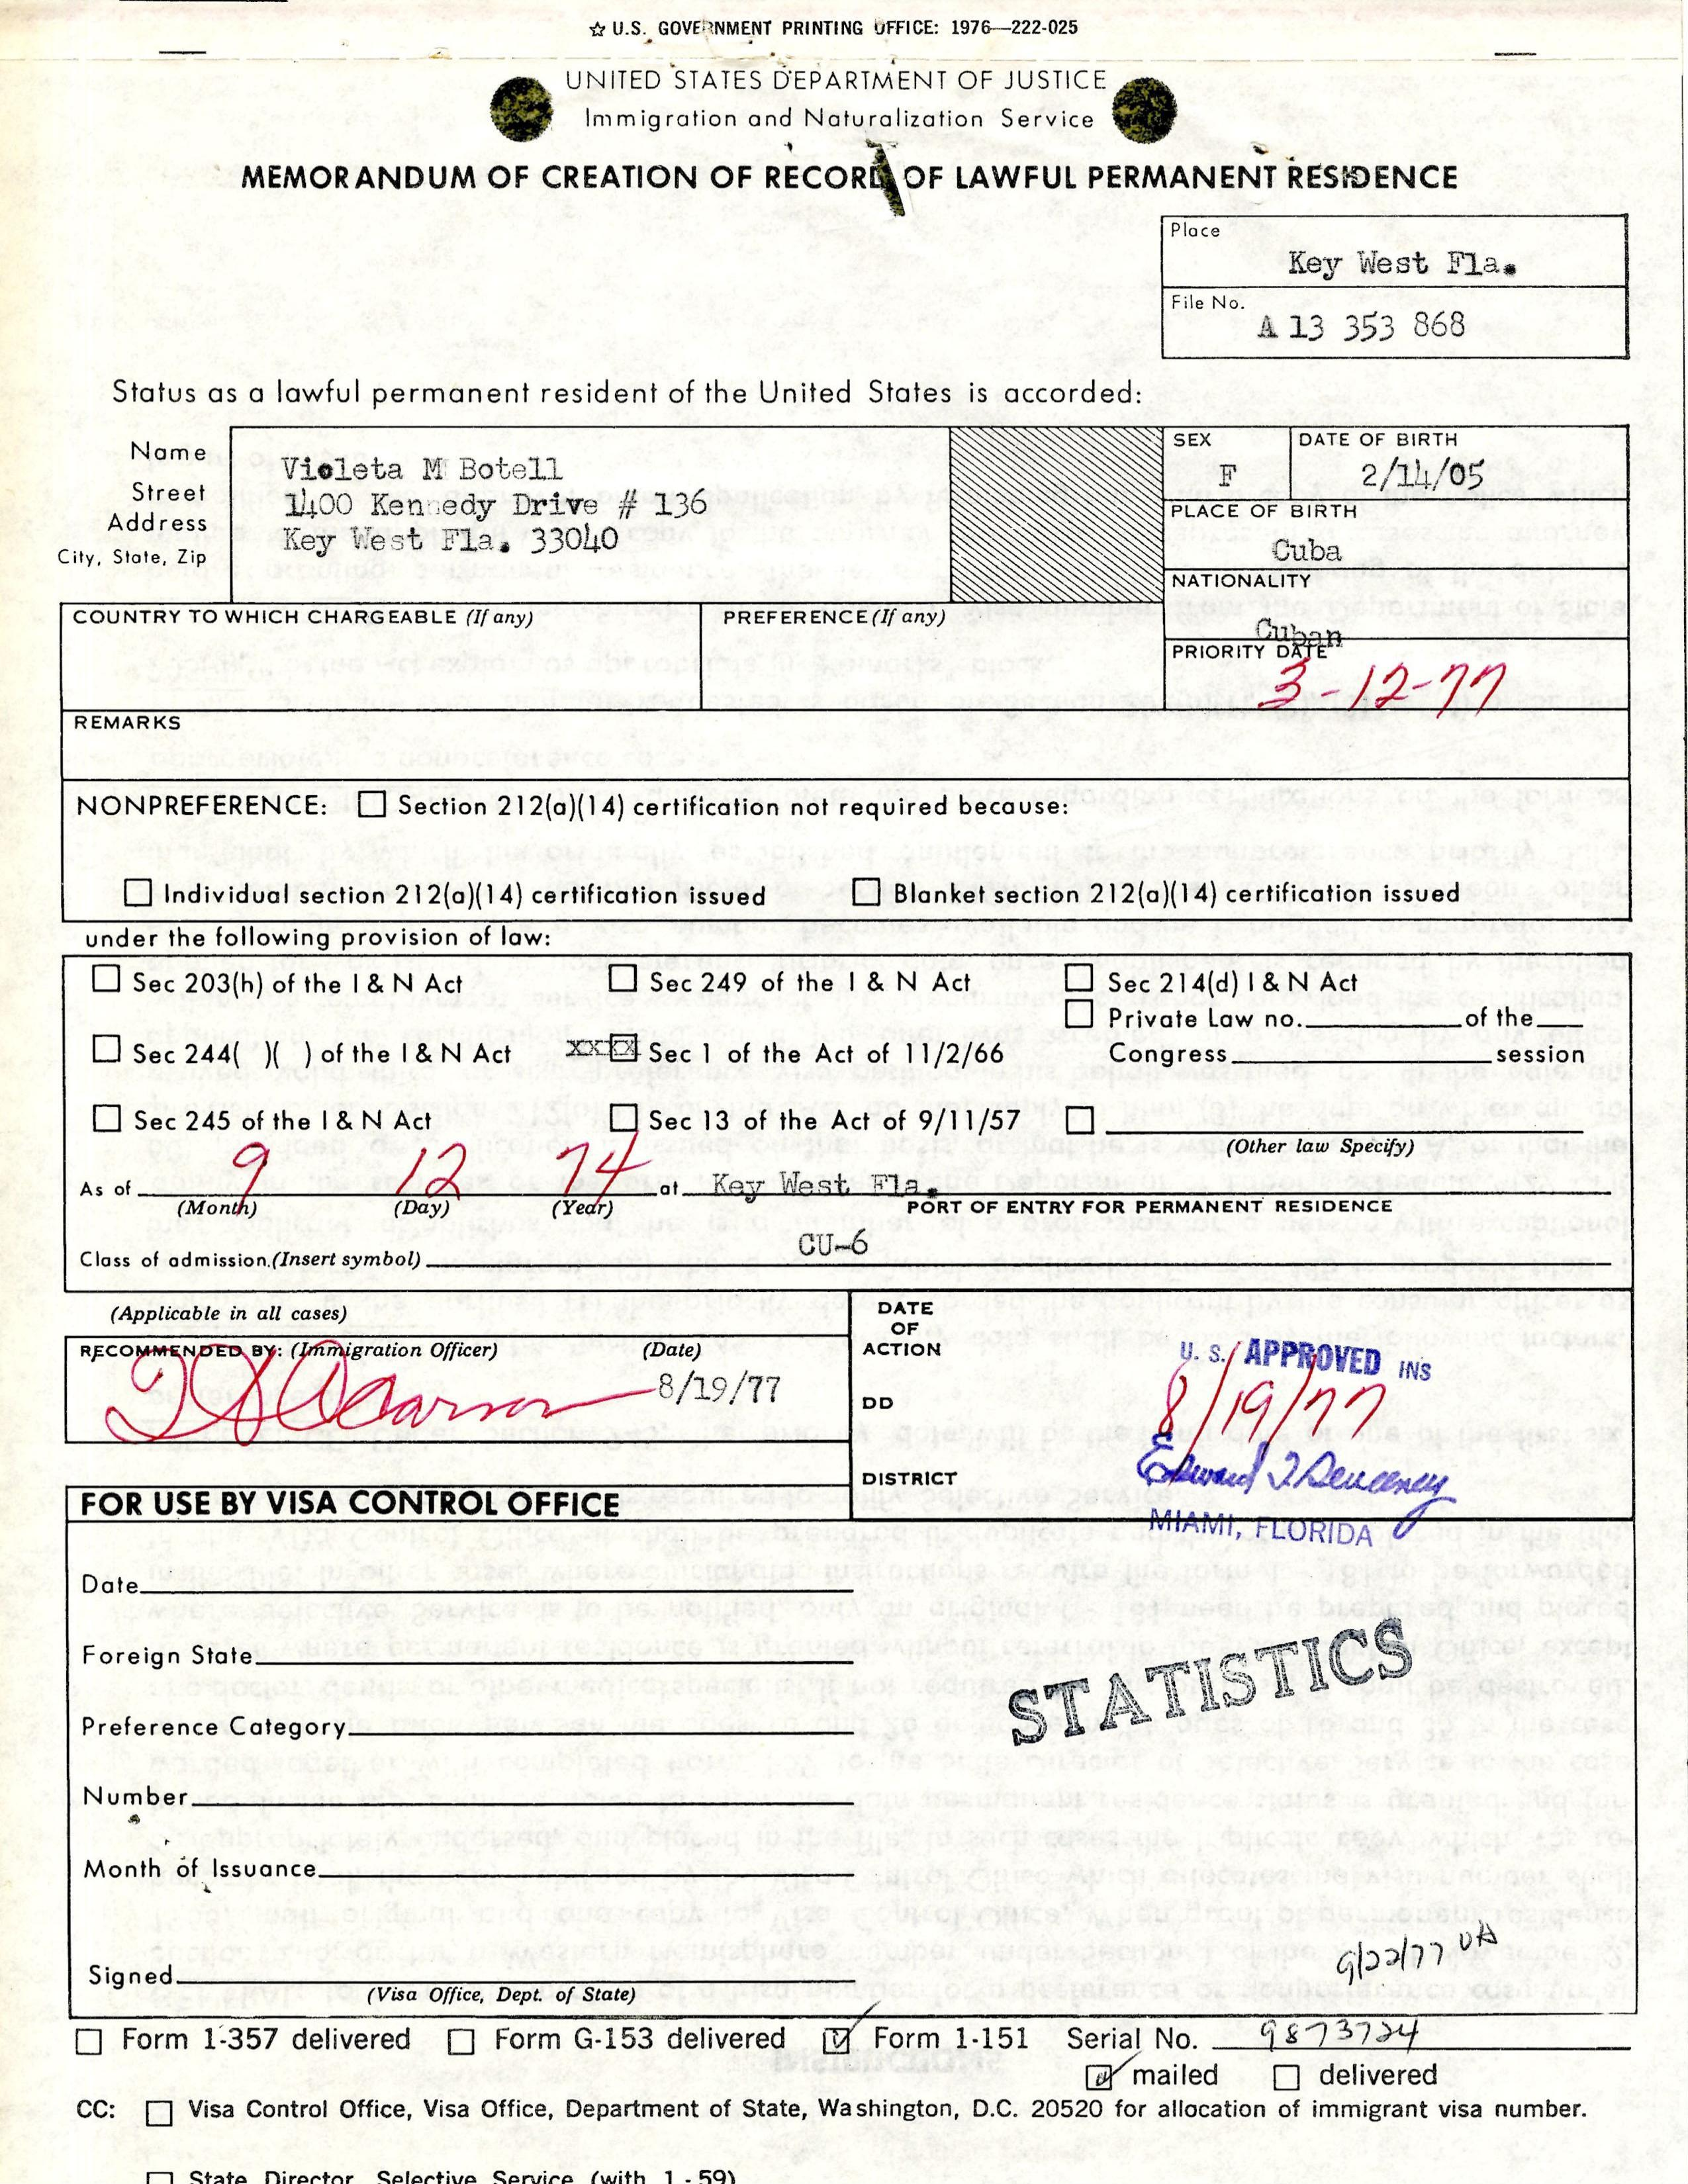 ☆ U.S. GOVERNMENT PRINTING OFFICE: 1976—222-025
UNITED STATES DEPARTMENT OF JUSTICE
Immigration and Naturalization Service
MEMORANDUM OF CREATION OF RECORD OF LAWFUL PERMANENT RESIDENCE
Place
Key West Fla.
File No.
A 13 353 868
Status as a lawful permanent resident of the United States is accorded:
Name
Street
Address
City, State, Zip
Violeta M Botell
1400 Kennedy Drive # 136
Key West Fla. 33040
SEX
F
DATE OF BIRTH
2/14/05
PLACE OF BIRTH
Cuba
NATIONALITY
Cuban
COUNTRY TO WHICH CHARGEABLE (If any)
PREFERENCE (If any)
PRIORITY DATE
3-12-77
REMARKS
NONPREFERENCE: ☐ Section 212(a)(14) certification not required because:
☐ Individual section 212(a)(14) certification issued ☐ Blanket section 212(a)(14) certification issued
under the following provision of law:
☐ Sec 203(h) of the I & N Act ☐ Sec 249 of the I & N Act ☐ Sec 214(d) I & N Act
☐ Private Law no. of the
☐ Sec 244( )( ) of the I & N Act xxxx Sec 1 of the Act of 11/2/66 Congress session
☐ Sec 245 of the I & N Act ☐ Sec 13 of the Act of 9/11/57 ☐
(Other law Specify)
As of 9 12 74 at Key West Fla.
(Month) (Day) (Year) PORT OF ENTRY FOR PERMANENT RESIDENCE
Class of admission.(Insert symbol) CU-6
(Applicable in all cases)
RECOMMENDED BY: (Immigration Officer) (Date)
8/19/77
DATE
OF
ACTION
DD
DISTRICT
U. S. APPROVED INS
8/19/77
Edward J Sweeney
MIAMI, FLORIDA
FOR USE BY VISA CONTROL OFFICE
Date
Foreign State
Preference Category
Number
Month of Issuance
Signed
(Visa Office, Dept. of State)
STATISTICS
9/22/77 UA
☐ Form 1-357 delivered ☐ Form G-153 delivered ☑ Form 1-151 Serial No. 9873724
☑ mailed ☐ delivered
CC: ☐ Visa Control Office, Visa Office, Department of State, Washington, D.C. 20520 for allocation of immigrant visa number.
☐ State Director, Selective Service (with 1-59)